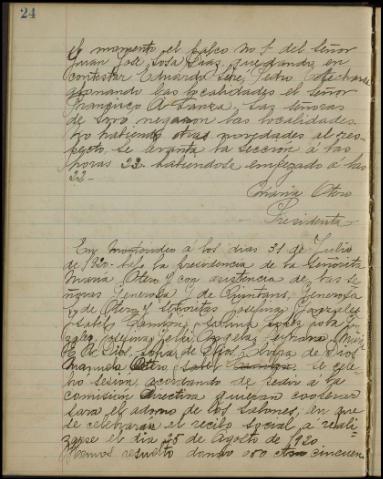 24
de momento el palco no 1 del Señor
Juan José Sosa Dias, quedando en
contestar Eduardo Sere, Pedro
abonando las localidades el señor
Francisco A. Lanza, las señoras
de negaron las localidades
no habiendo otras novedades al res-
pecto. Se levanta la Sección á las
horas 23 habiéndose empezado á las
22.
María Otero
Presidenta
En Montevideo a los dias 31 de Julio
de 1920 bajo la presidencia de la Señorita
María Otero y con asistencia de las se-
ñoras Generosa G de Quintans, Generosa
de Otero y Señoritas Josefina Gonzales
Isabel Carmen, Lopez
Josefina Angela
de Dios, de Dios, Olga de Dios
Manuela Otero, Isabel Se cele-
bró sesión, acordando de pedir a la
comisión Directiva quieran cooperar
para el adorno de los salones, en que
se celebrara el recibo social a reali-
zarse el dia 25 de Agosto de 1920
Hemos resuelto donar cincuen